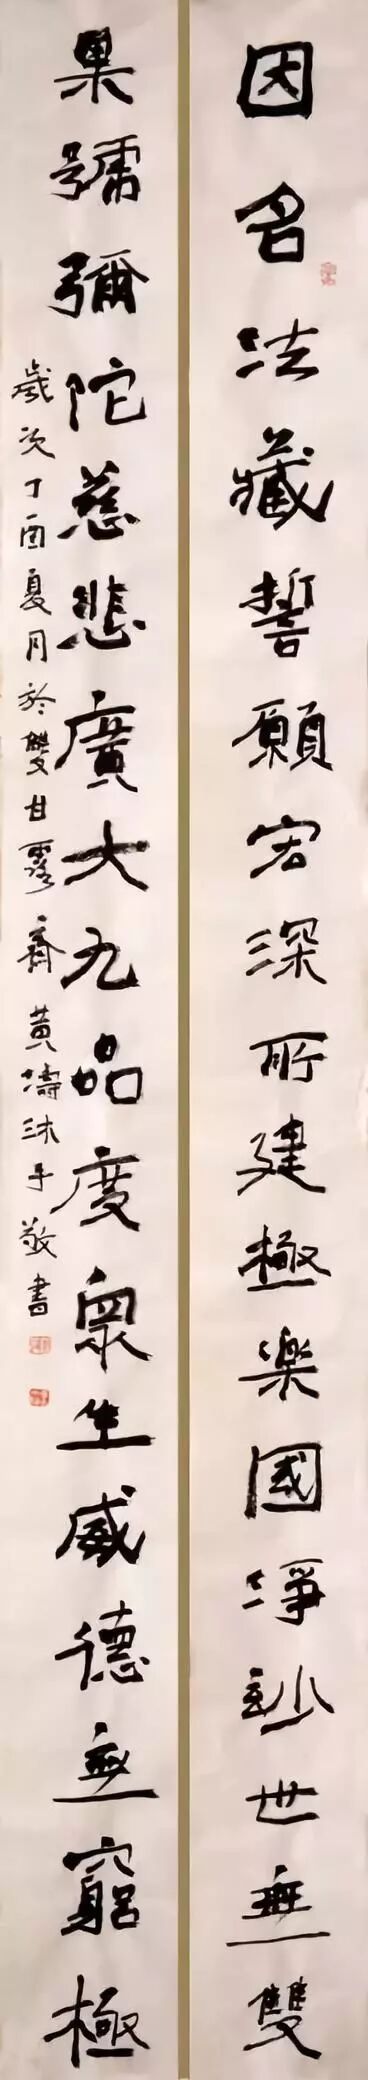 因名法藏誓願宏深所建極樂國淨妙世無雙
果號彌陀慈悲廣大九品度眾生威德無窮極
歲次丁酉夏月於雙甘露齋黃濤沐手敬書